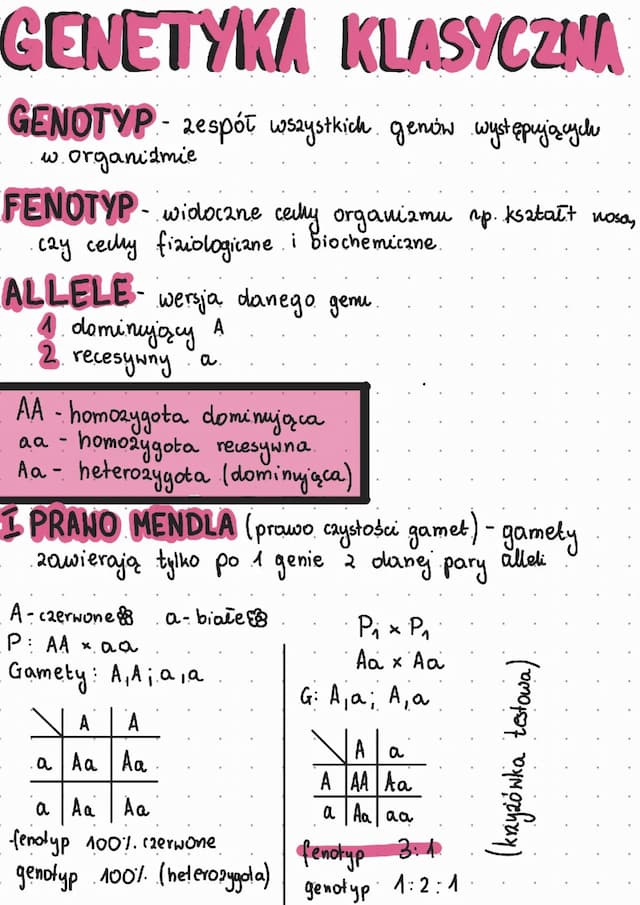 GENETYKA KLASYCZNA
GENOTYP - zespół wszystkich genów występujących
w organizmie
FENOTYP - widoczne cechy organizmu np. kształt nosa,
czy cechy fiziologiczne i biochemiczne
ALLELE - wersja danego genu
1 dominujący A
2 recesywny a
AA - homozygota dominująca
aa - homozygota recesywna
Aa - heterozygota (dominująca)
I PRAWO MENDLA (prawo czystości gamet) - gamety
zawierają tylko po 1 genie z danej pary alleli
A - czerwone a - białe
P: AA x aa
Gamety: A, A; a, a
A A
a Aa Aa
a Aa Aa
fenotyp 100% czerwone
genotyp 100% (heterozygota)
P₁ x P₁
Aa x Aa
G: A, a; A, a
A a
A AA Aa
a Aa aa
fenotyp 3:1
genotyp 1:2:1
(krzyżówka testowa)